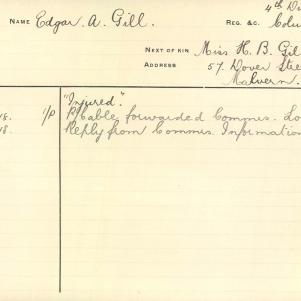 4th D
NAME Edgar A. Gill. REG. &C. Colu
NEXT OF KIN Miss H. B. Gil
ADDRESS 57. Dover Stee
Malvern.
"Injured."
18. 1/P Cable forwarded Commrs. Lo
18. Reply from Commrs. Information